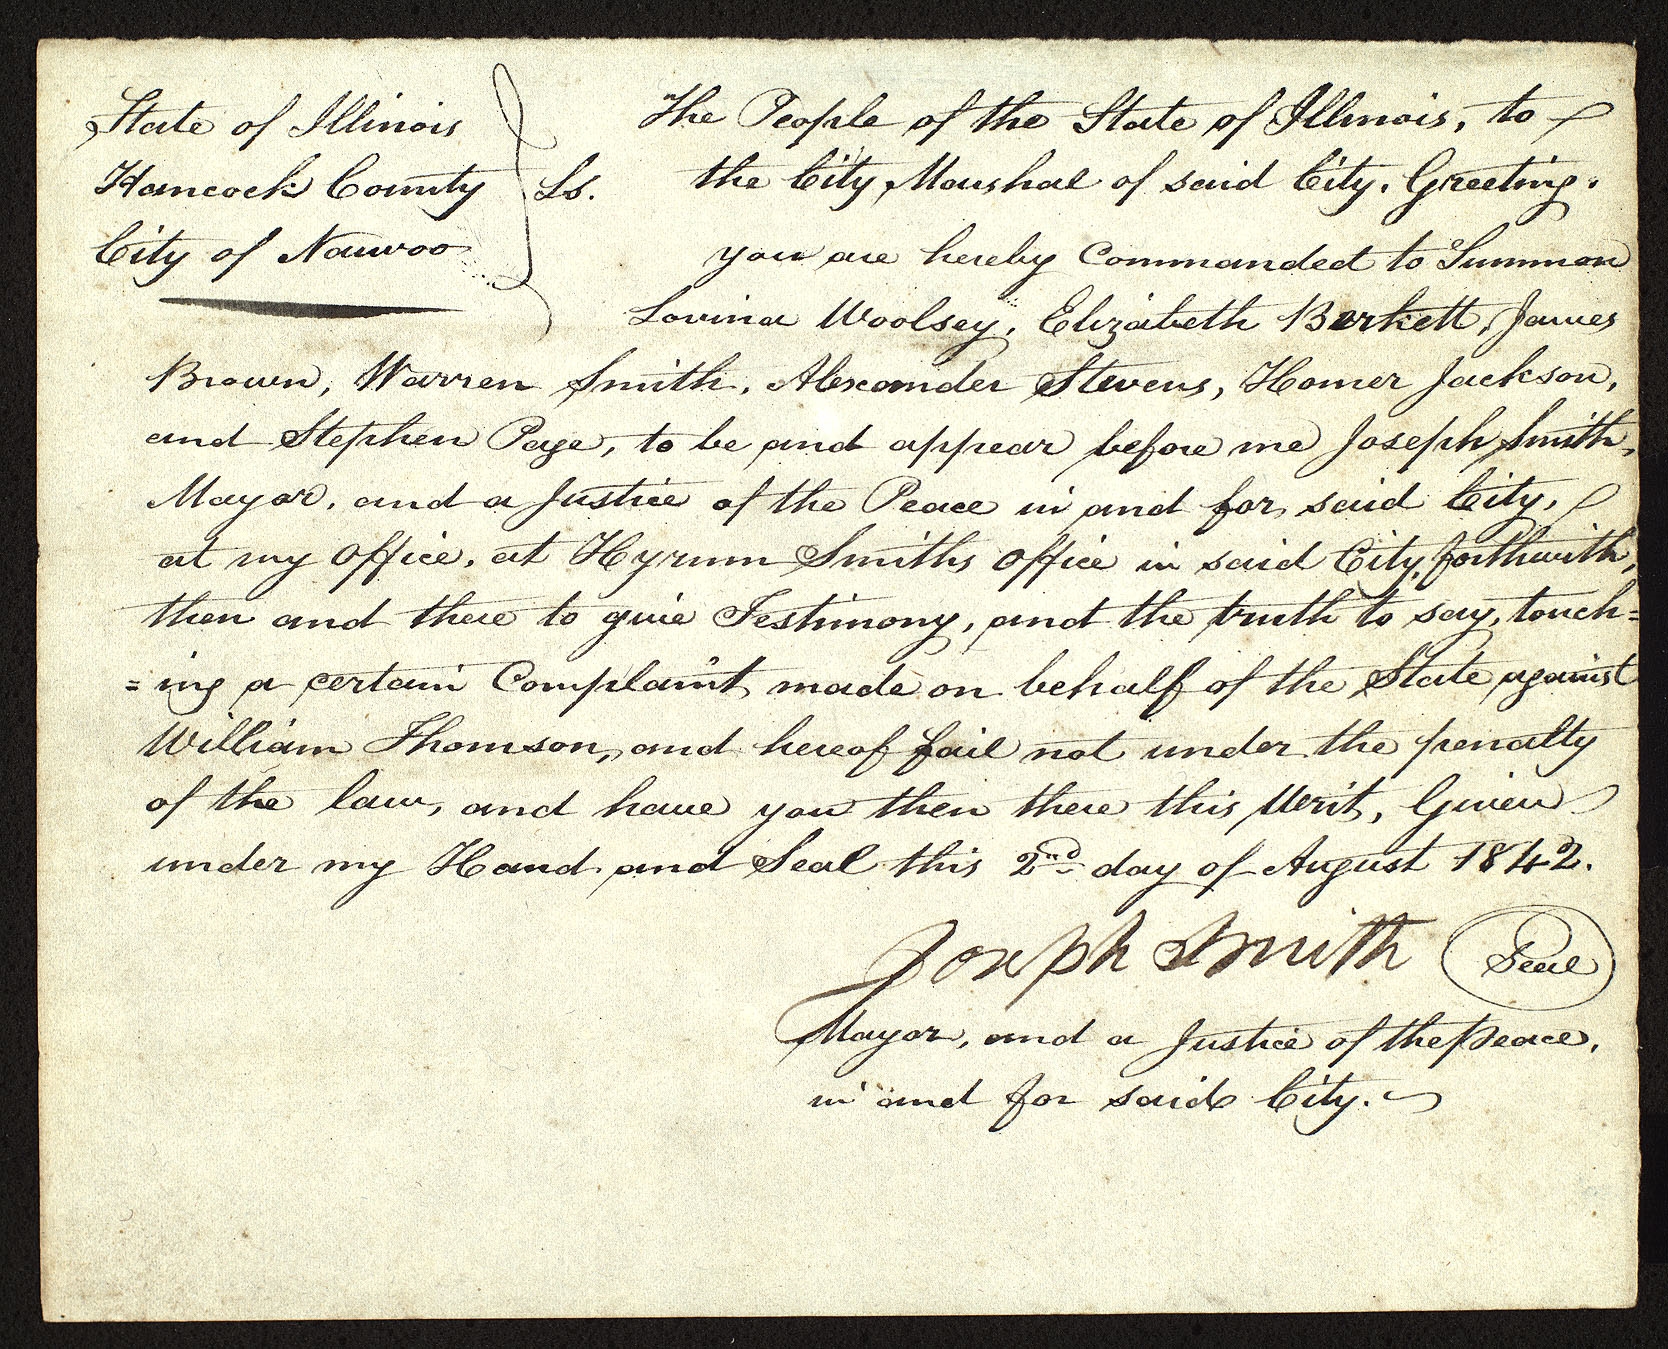 State of Illinois
Hancock County
City of Nauvoo
Ss.
The People of the State of Illinois, to
the City Marshal of said City. Greeting.
you are hereby Commanded to Summon
Lovina Woolsey, Elizabeth Berkett, James
Brown, Warren Smith, Alexander Stevens, Homer Jackson,
and Stephen Page, to be and appear before me Joseph Smith,
Mayor, and a Justice of the Peace in and for, said City,
at my office, at Hyrum Smiths office in said City, forthwith,
then and there to give Testimony, and the truth to say, touch=
=ing a certain Complaint, made on behalf of the State against
William Thomson, and hereof fail not under the penalty
of the law, and have you then there this Writ, Given
under my Hand and Seal this 2nd day of August 1842.
Joseph Smith Seal
Mayor, and a Justice of the Peace,
in and for said City.